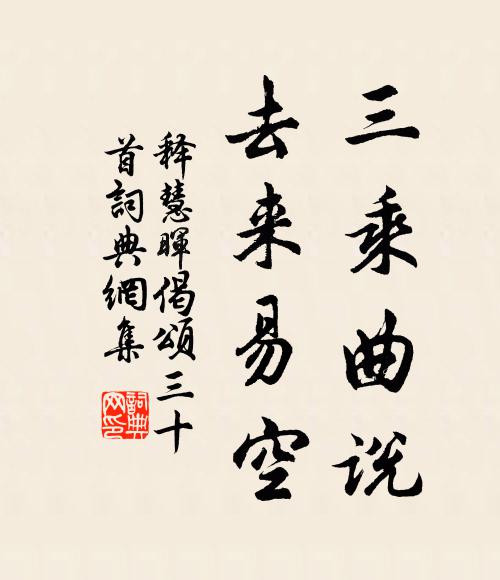 三乘曲说
去来易空
释慧暉偈頌三十
首詞典網集
詞典
网印